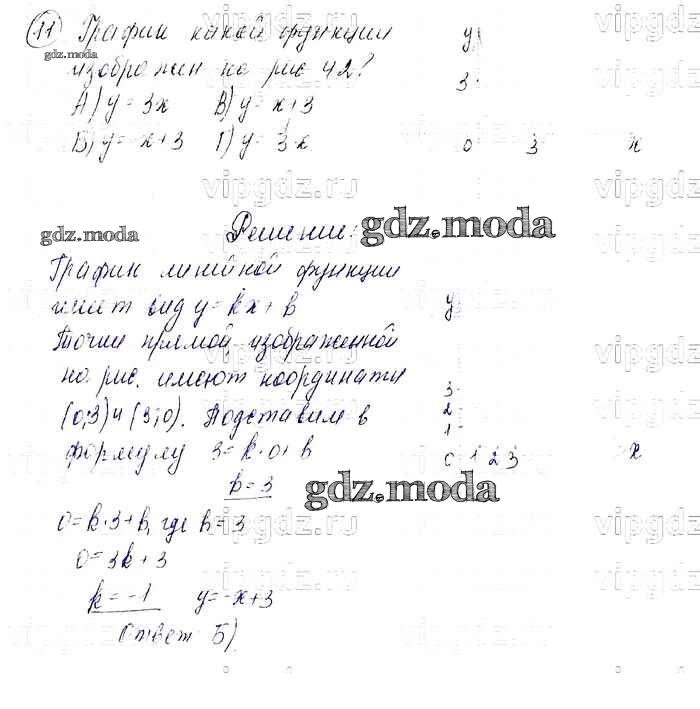 11) График какой функции
изображен на рис 42?
А) у = 3x В) у = x+3
Б) у = -x+3 Г) у = 3-x
у
3
0 3 x
gdz.moda
vipgdz.ru
Решение:
gdz.moda
gdz.moda
График линейной функции
имеет вид у = kx + b
Точки прямой, изображенной
на рис. имеют координаты
(0;3) и (3;0). Подставим в
формулу 3 = k·0 + b
b = 3
0 = k·3 + b, где b = 3
0 = 3k + 3
k = -1 у = -x+3
Ответ Б)
у
3
2
1
0 1 2 3 x
gdz.moda
vipgdz.ru
vipgdz.ru
vipgdz.ru